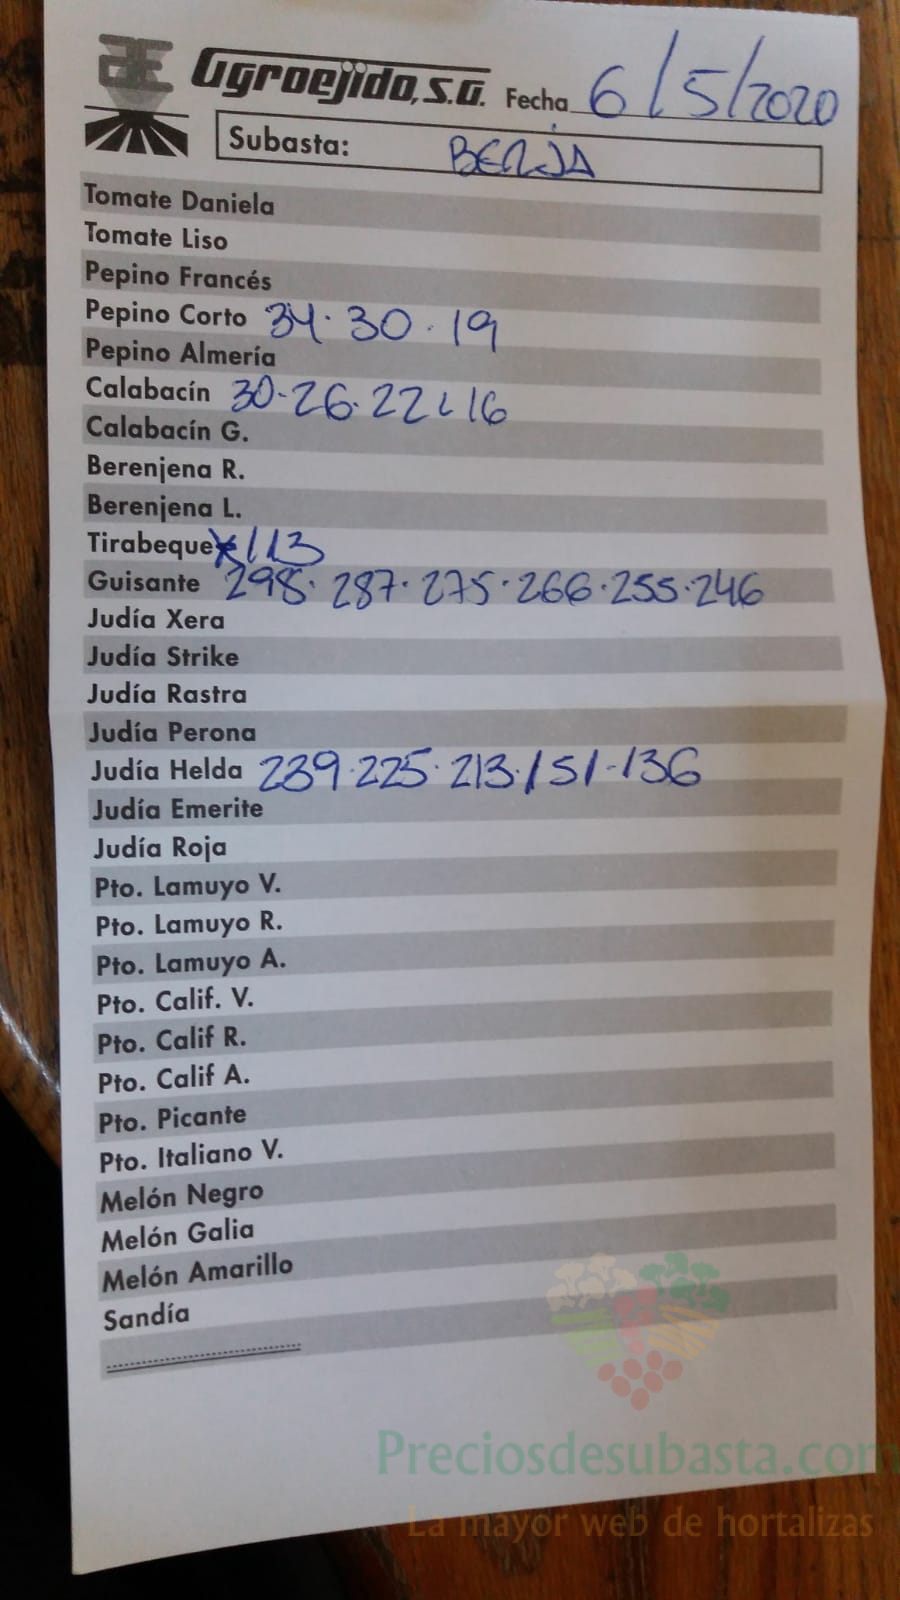 AE Agroejido, S.A. Fecha 6/5/2020
Subasta: BERJA
Tomate Daniela
Tomate Liso
Pepino Francés
Pepino Corto 34. 30. 19
Pepino Almería
Calabacín 30-26.22 16
Calabacín G.
Berenjena R.
Berenjena L.
Tirabeque 113
Guisante 298. 287. 275. 266. 255. 246
Judía Xera
Judía Strike
Judía Rastra
Judía Perona
Judía Helda 239.225. 213.151-136
Judía Emerite
Judía Roja
Pto. Lamuyo V.
Pto. Lamuyo R.
Pto. Lamuyo A.
Pto. Calif. V.
Pto. Calif R.
Pto. Calif A.
Pto. Picante
Pto. Italiano V.
Melón Negro
Melón Galia
Melón Amarillo
Sandía
Preciosdesubasta.com
La mayor web de hortalizas